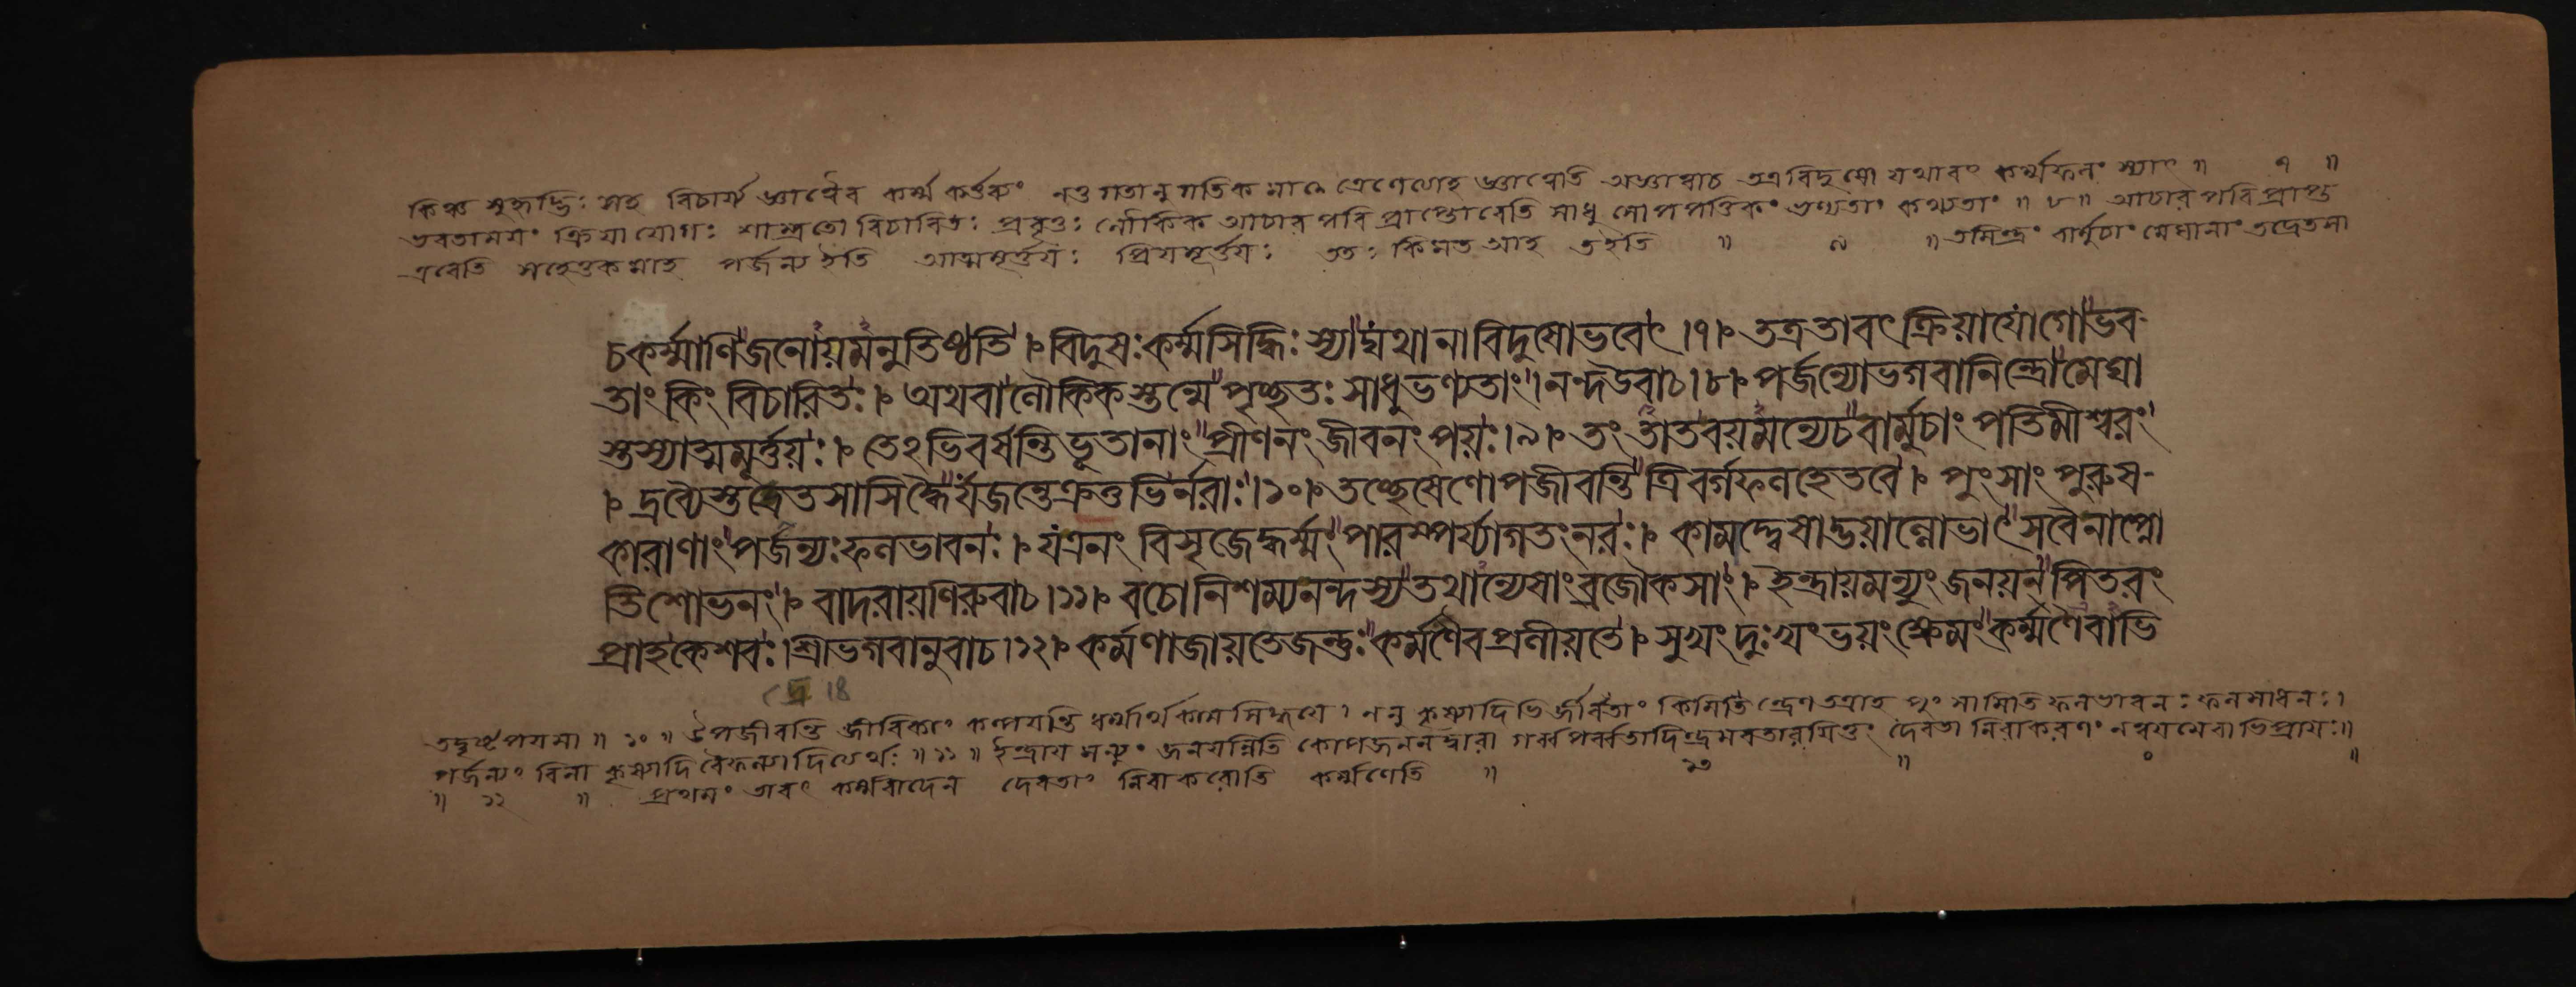 কিঞ্চ সুহৃদ্ভিঃ সহ বিচার্য্য জ্ঞাত্বৈব কর্ম্ম কর্ত্তব্যং নতু গতানুগতিক অজ্ঞাত্বাচ তত্র বিদুষো যথাবৎ কর্ম্মফলং স্যাৎ ॥ ৭ ॥
ভবতাময়ং ক্রিয়া যোগঃ শাস্ত্রতো বিচারিতঃ প্রবৃত্তঃ লৌকিক আচার পরি প্রাপ্তোবেতি সাধু সোপপত্তিকং ভণ্যতাং কথ্যতাং ॥ ৮ ॥ আচার পরিপ্রাপ্ত
এবেতি সহেতুকমাহ পর্জন্য ইতি আত্মমূর্ত্তয়ঃ প্রিয়মূর্ত্তয়ঃ ততঃ কিমত আহ তইতি ॥ ৯ ॥ তমিন্দ্রং বার্মুচাং মেঘানাং তদ্রেতসা
চকর্ম্মাণি জনোয়মনুতিষ্ঠতি । বিদুষঃ কর্ম্মসিদ্ধিঃ স্যাদ্যথা নাবিদুষোভবেৎ ।৭। তত্র তাবৎ ক্রিয়াযোগো ভব-
তাং কিং বিচারিতঃ । অথবা লৌকিকস্তন্মে পৃচ্ছতঃ সাধুভণ্যতাং । নন্দউবাচ ।৮। পর্জন্যোভগবানিন্দ্রো মেঘা
স্তস্যাত্মমূর্ত্তয়ঃ । তেঽভিবর্ষন্তি ভূতানাং প্রীণনং জীবনং পয়ঃ ।৯। তং তাতবয়মন্যেচ বার্মুচাং পতিমীশ্বরং
। দ্রব্যৈস্তদ্রেতসাসিদ্ধৈর্যজন্তে ক্রতুভির্নরাঃ ।১০। তচ্ছেষেণোপজীবন্তি ত্রিবর্গফলহেতবে । পুংসাং পুরুষ-
কারাণাং পর্জন্যঃ ফলভাবনঃ । য এনং বিসৃজেদ্ধর্ম্মং পারম্পর্য্যাগতং নরঃ । কামদ্দ্বেষাদ্ভয়াল্লোভাৎ সবৈনাপ্নো
তিশোভনং । বাদরায়ণিরুবাচ ।১১। বচোনিশম্য নন্দস্য তথান্যেষাং ব্রজৌকসাং । ইন্দ্রায়মন্যুং জনয়ন্ পিতরং
প্রাহ কেশবঃ । শ্রীভগবানুবাচ ।১২। কর্মণাজায়তে জন্তুঃ কর্মণৈব প্রলীয়তে । সুখং দুঃখং ভয়ং ক্ষেমং কর্ম্মণৈবাভি
18
তদ্বৃষ্টপয়সা ॥ ১০ ॥ উপজীবন্তি জীবিকাং কল্পয়ন্তি ধর্ম্মার্থকামসিদ্ধয়ে । ননু কৃষ্যাদিভি র্জীবতাং কিমিতি ন্দ্রেণ তত্রাহ পুং সামিতি ফলভাবনঃ ফলসাধনঃ ।
পর্জন্যং বিনা কৃষ্যাদি বৈফল্যাদিত্যর্থঃ ॥ ১১ ॥ ইন্দ্রায় মন্যুং জনয়ন্নিতি কোপজননদ্বারা গর্ব্বপর্ব্বতাদিন্দ্রমবতারয়িতুং দেবতা নিরাকরণং নত্বয়মেবাভিপ্রায়ঃ ॥
॥ ১২ ॥ প্রথমং তাবৎ কর্ম্মবাদেন দেবতাং নিরাকরোতি কর্ম্মণেতি ॥ ১৩ ॥ ॰ ॥